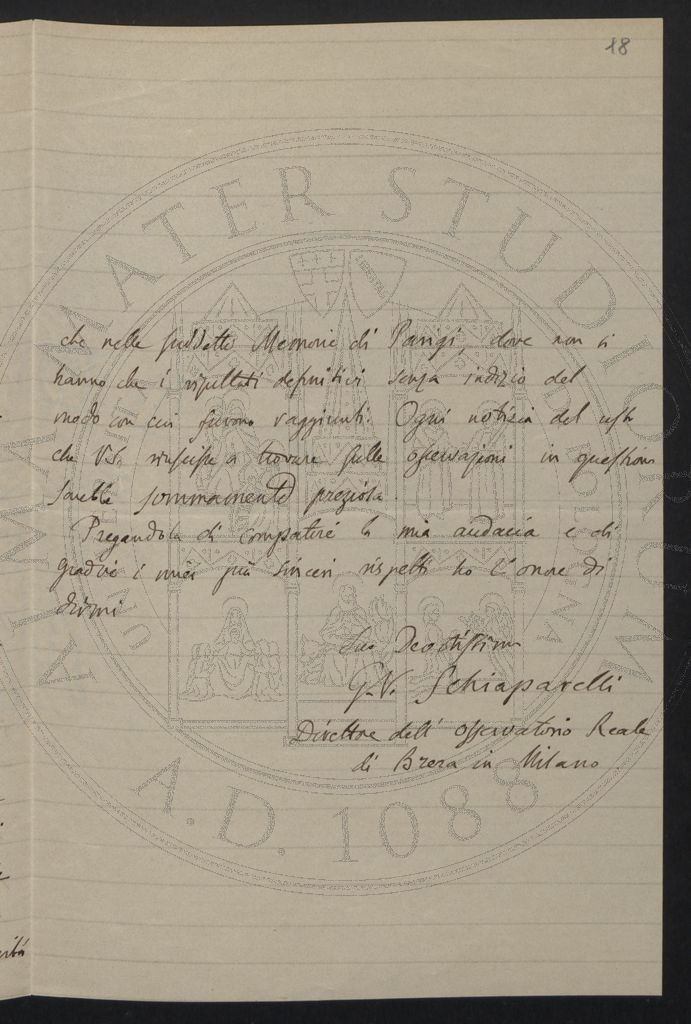 18
che nelle suddette Memorie di Parigi, dove non si
hanno che i risultati definitivi senza indizio del
modo con cui furono raggiunti. Ogni notizia del
che V.S. riuscisse a trovare sulle osservazioni in questione
sarebbe sommamente preziosa.
Pregandola di compatire la mia audacia e di
gradire i miei più sinceri rispetti ho l'onore di
dirmi
Suo Devotissimo
G. V. Schiaparelli
Direttore dell' Osservatorio Reale
di Brera in Milano
ALMA MATER STUDIORUM
A.D. 1088